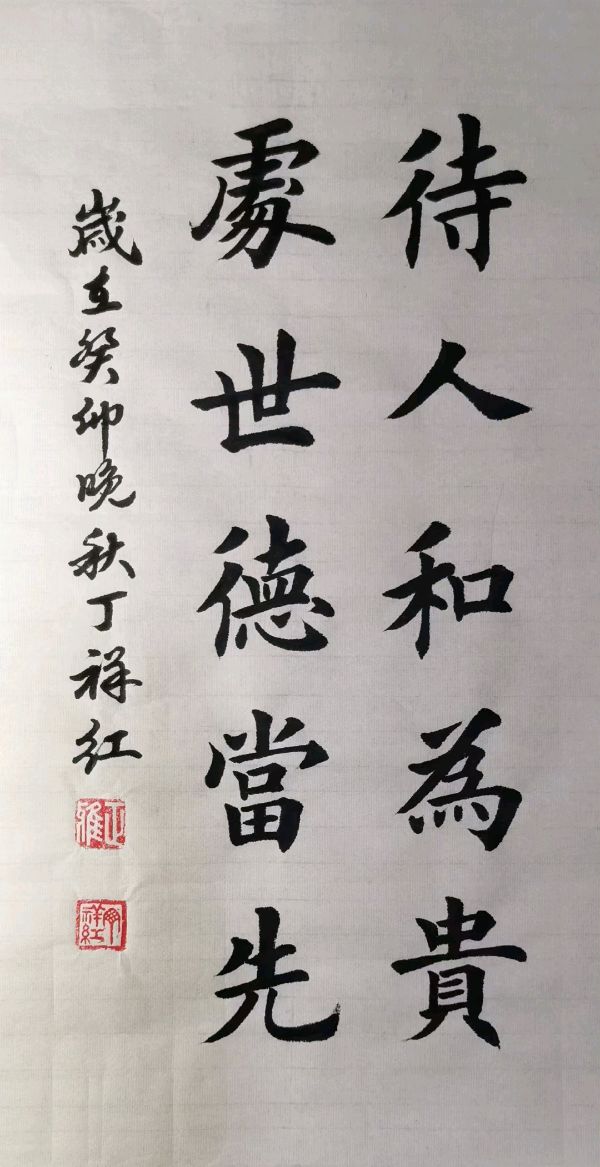 待人和為貴
處世德當先
歲在癸卯晚秋丁祥紅